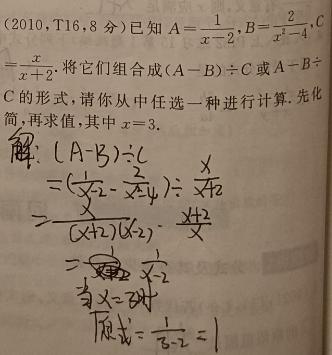 (2010,T16,8 分)已知 A=\frac{1}{x-2},B=\frac{2}{x^2-4},C
=\frac{x}{x+2}.将它们组合成(A-B)÷C或A-B÷
C的形式,请你从中任选一种进行计算.先化
简,再求值,其中 x=3.
解:(A-B)÷C
=(\frac{1}{x-2}-\frac{2}{x^2-4})÷\frac{x}{x+2}
=\frac{x}{(x+2)(x-2)}·\frac{x+2}{x}
=\frac{1}{x-2}
当x=3时
原式=\frac{1}{3-2}=1